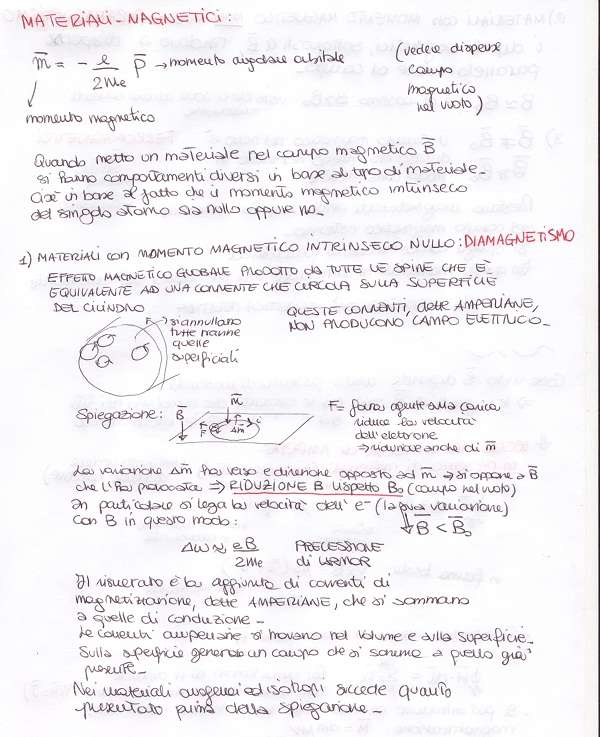 MATERIALI-MAGNETICI:
m̄ = - e/2Me P̄ → momento angolare orbitale
(vedere dispense
campo
magnetico
nel vuoto)
momento magnetico
Quando metto un materiale nel campo magnetico B̄
si hanno comportamenti diversi in base al tipo di materiale.
Cioè in base al fatto che il momento magnetico intrinseco
del singolo atomo sia nullo oppure no.
1) MATERIALI con MOMENTO MAGNETICO INTRINSECO NULLO: DIAMAGNETISMO
EFFETTO MAGNETICO GLOBALE PRODOTTO da TUTTE LE SPIRE CHE È
EQUIVALENTE AD UNA CORRENTE CHE CIRCOLA SULLA SUPERFICIE
DEL CILINDRO
QUESTE CORRENTI, dette AMPERIANE,
NON PRODUCONO CAMPO ELETTRICO.
si annullano
tutte tranne
quelle
superficiali
Spiegazione: B̄
m̄
F
Δm
F = forza agente sulla carica
riduce la velocità
dell'elettrone
⇒ riduzione anche di m̄
La variazione Δm̄ ha verso e direzione opposto ad m̄ ⇒ si oppone a B̄
che l'ha provocata ⇒ RIDUZIONE B rispetto B₀ (campo nel vuoto)
In particolare si lega la velocità dell' e⁻ (la sua variazione)
con B in questo modo:
B̄ < B̄₀
Δω ≈ eB/2Me PRECESSIONE
di LARMOR
Il risultato è la aggiunta di correnti di
magnetizzazione, dette AMPERIANE, che si sommano
a quelle di conduzione.
Le correnti amperiane si trovano nel volume e sulla superficie.
Sulla superficie generano un campo che si somma a quello già
presente.
Nei materiali omogenei ed isotropi succede quanto
presentato prima della spiegazione.